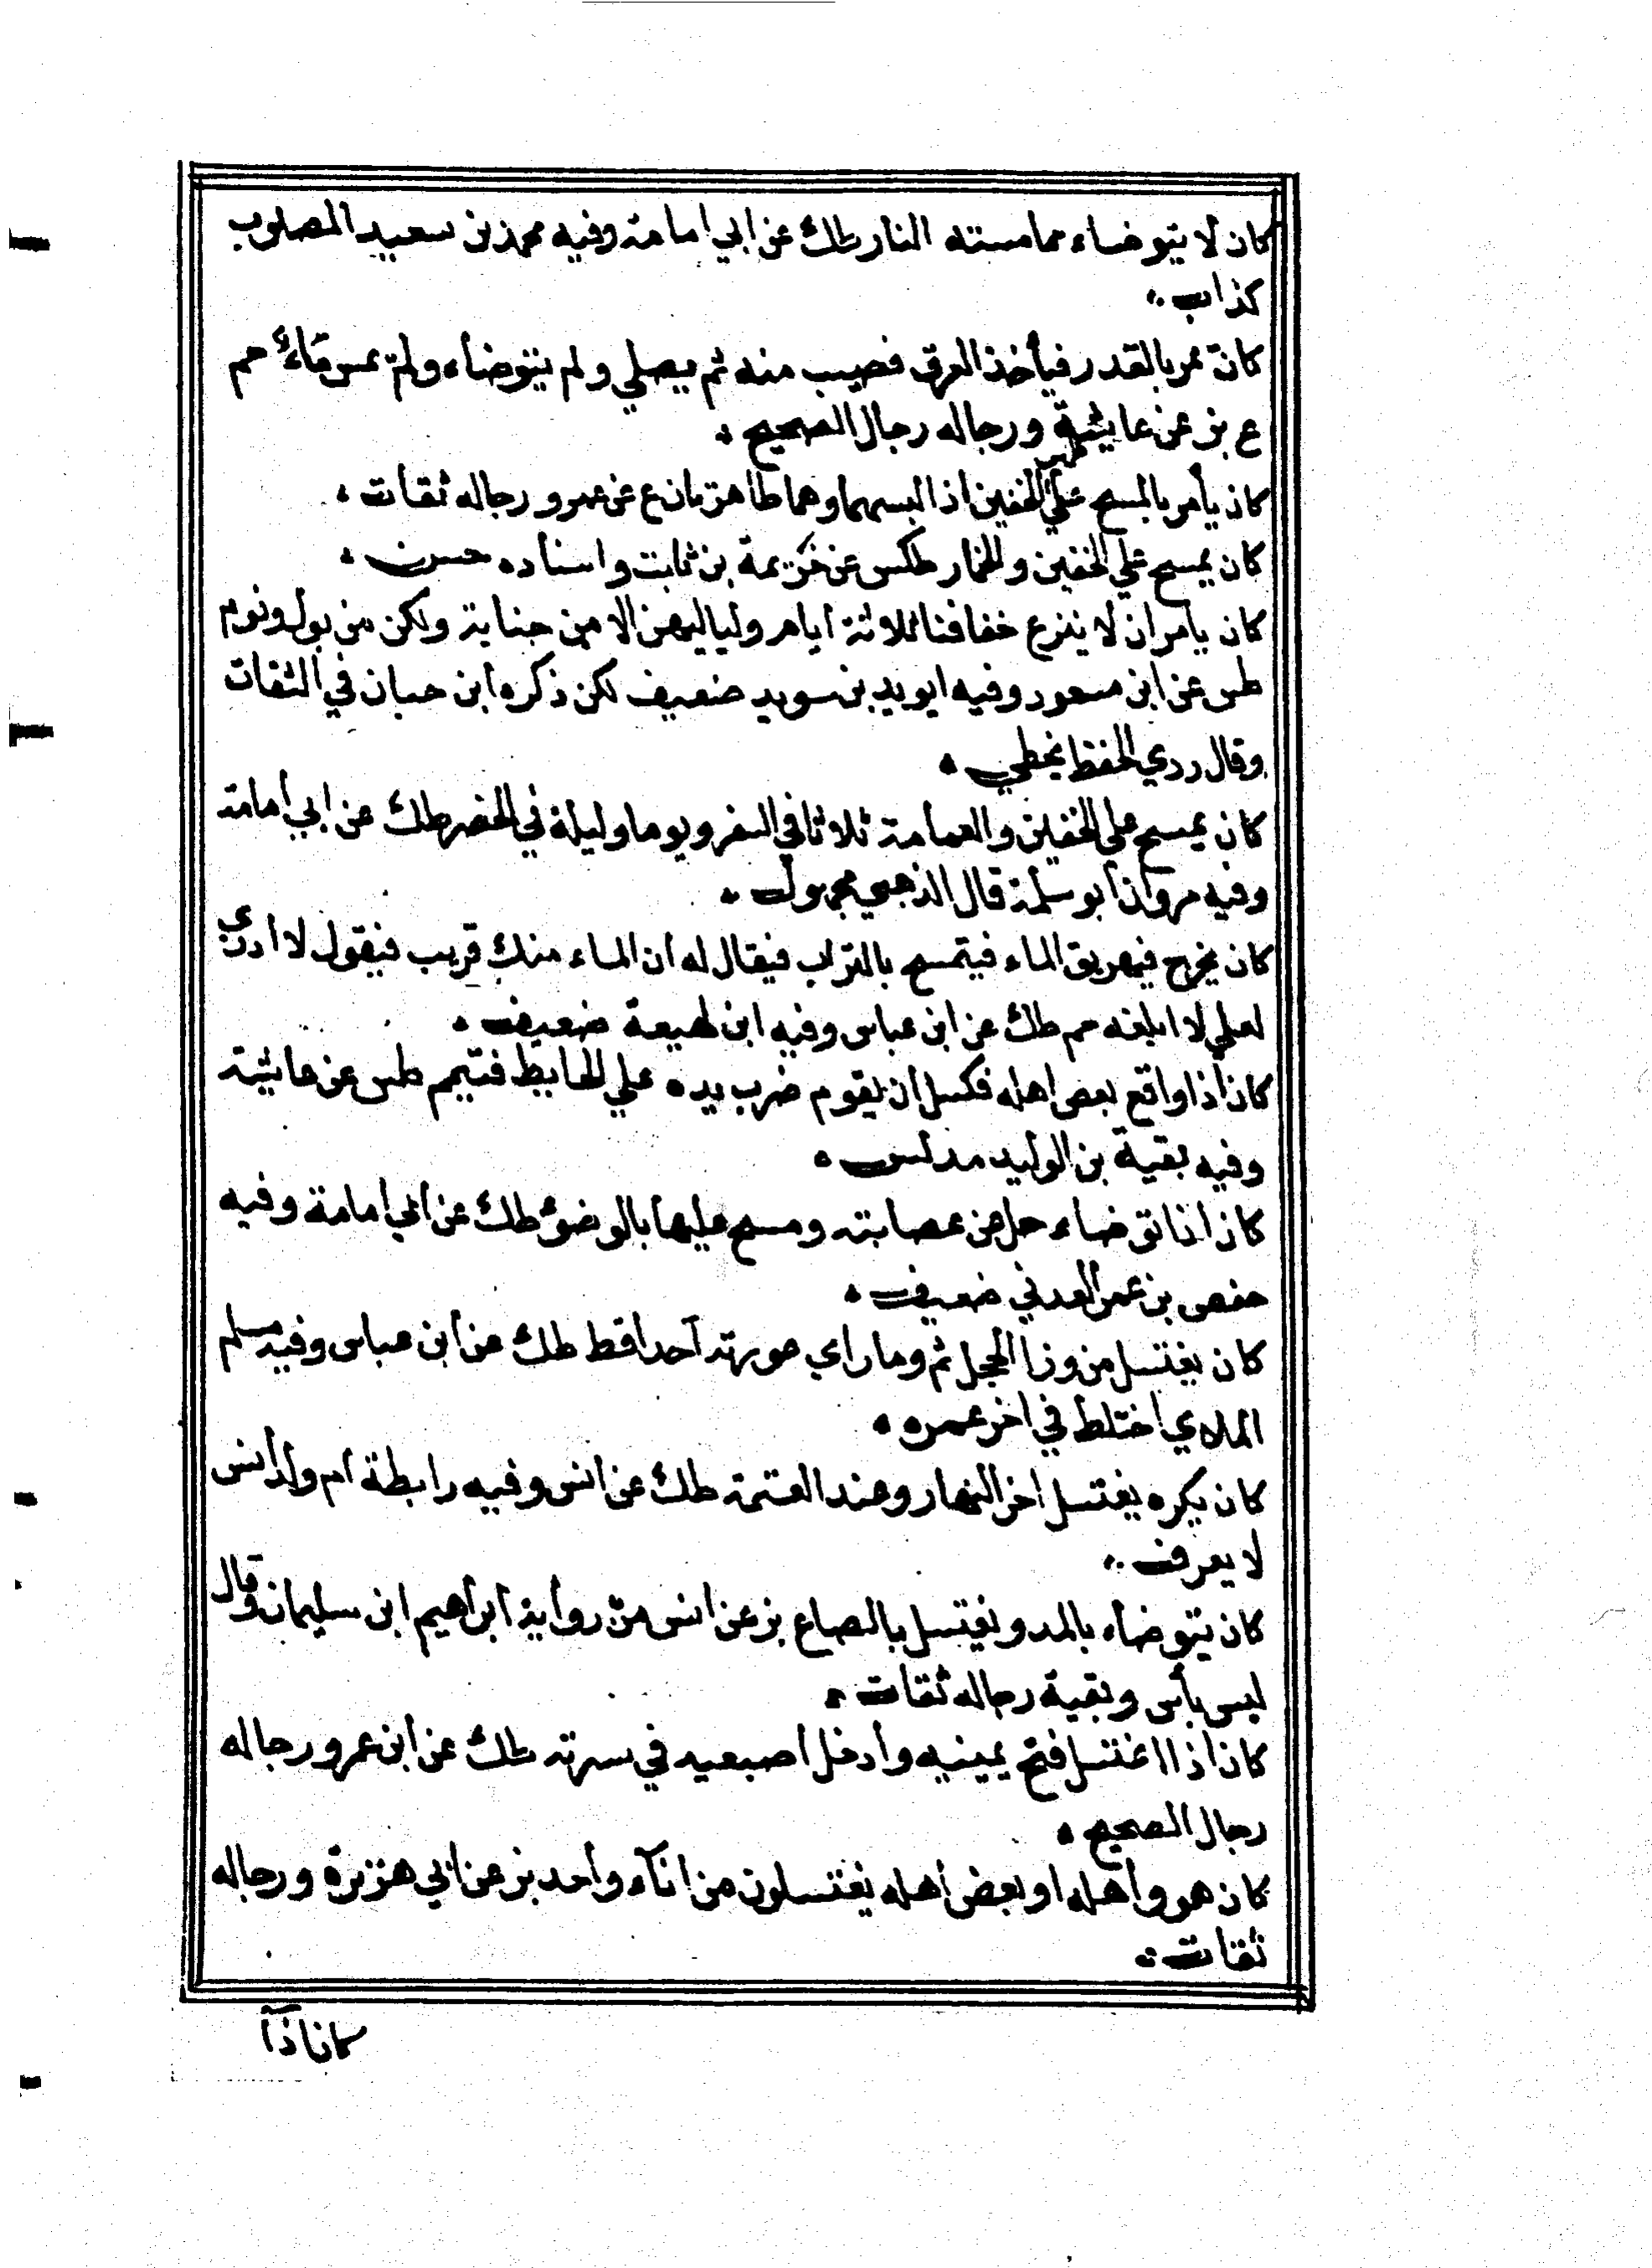 كان لا يتوضاء مما مسته النار طك عن ابي امامة وفيه محمد بن سعيد المصلوب
كذاب
كان يمر بالقدر فيأخذ العرق فصيب منه ثم يصلي ولم يتوضاء ولم يمس ماء حم
ع بز عن عايشة ورجاله رجال الصحيح
كان يأمر بالمسح علي ظهر الخفين اذا لبسهما وهما طاهرتان ع عن عمر ورجاله ثقات
كان يمسح علي الخفين والخمار طكس عن خزيمة بن ثابت واسناده حسن
كان يامر ان لا ينزع خفافنا ثلاثة ايام ولياليهن الا من جنابة ولكن من بول ونوم
طس عن ابن مسعود وفيه ايوب بن سويد ضعيف لكن ذكره ابن حبان في الثقات
وقال ردي الحفظ يخطي
كان يمسح علي الخفين والعمامة ثلاثا في السفر ويوما وليلة في الحضر طك عن ابي امامة
وفيه مروان ابو سلمة قال الذهبي مجهول
كان يخرج فيهريق الماء فيتمسح بالتراب فيقال له ان الماء منك قريب فيقول لا ادري
لعلي لا ابلغه حم طك عن ابن عباس وفيه ابن لهيعة ضعيف
كان اذا واقع بعض اهله فكسل ان يقوم ضرب يده علي الحايط فتيمم طس عن عايشة
وفيه بقية بن الوليد مدلس
كان اذا توضاء حل من عصابته ومسح عليها بالوضوء طك عن ابي امامة وفيه
حفص بن عمر العدني ضعيف
كان يغتسل من وزا الحجل ثم وما راي عورته احد اقط طك عن ابن عباس وفيه مسلم
الملاي اختلط في اخر عمره
كان يكره يغتسل اخر النهار وعند العتمة طك عن انس وفيه رابطة ام ولد انس
لا يعرف
كان يتوضاء بالمد ويغتسل بالصاع بز عن انس من رواية ابراهيم ابن سليمان وقال
ليس بأس وبقية رجاله ثقات
كان اذا اغتسل فتح يمينيه وأدخل اصبعيه في سرته طك عن ابن عمر ورجاله
رجال الصحيح
كان هو وأهله او بعض أهله يغتسلون من انآء واحد بز عن ابي هريرة ورجاله
ثقات
كان اذا